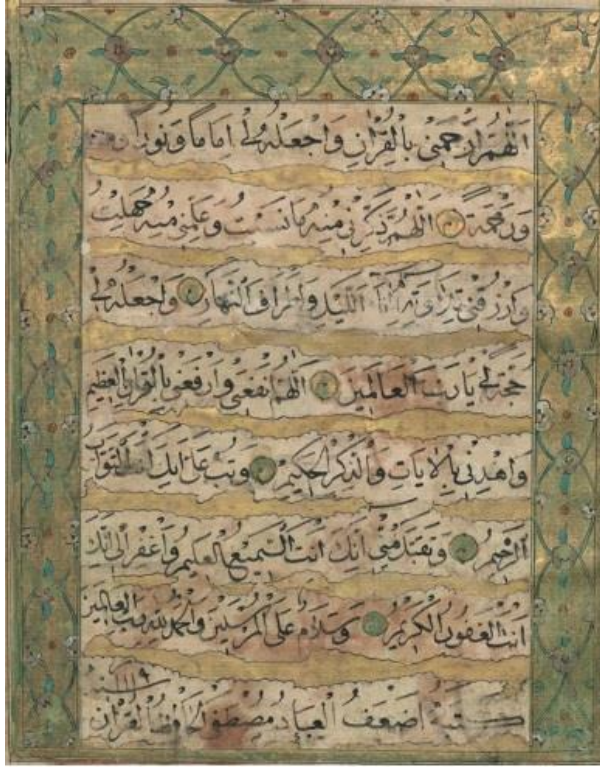 اللهم ارحمني بالقران واجعله لي اماما ونورا
ورحمة اللهم ذكرني منه ما نسيت وعلمني منه ما جهلت
وارزقني تلاوته اناء الليل واطراف النهار واجعله لي
حجة لي يا رب العالمين اللهم انفعني وارفعني بالقران العظيم
واهدني بالايات والذكر الحكيم وتب علي انك انت التواب
الرحيم وتقبل مني انك انت السميع العليم واغفر لي انك
انت الغفور الكريم وسلام على المرسلين والحمد لله رب العالمين
كتبه اضعف العباد مصطفى الحافظ القران سنة ١١١٩